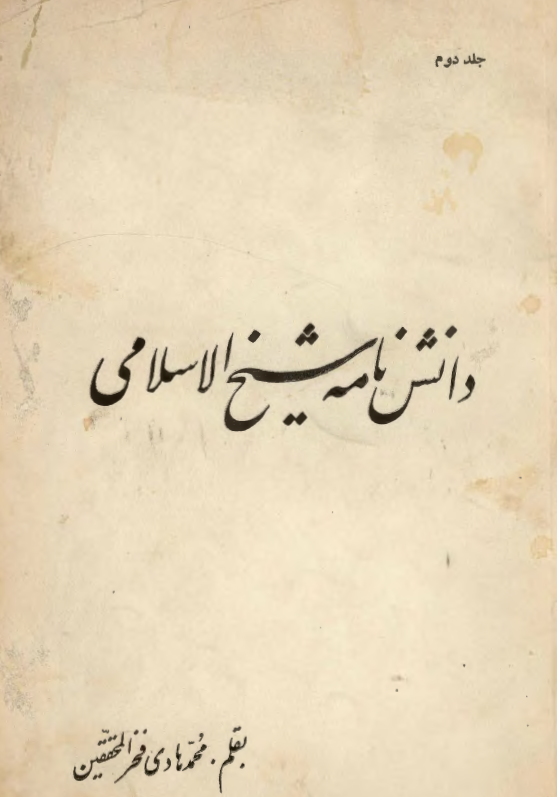 جلد دوم
دانشنامه شیخ الاسلامی
بقلم. محمّد هادی فخر المحققین